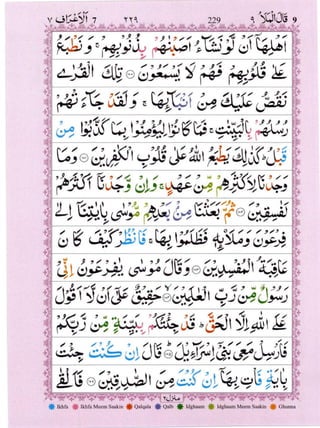 ٧ اَلْاَعْرَاف 7 ٢٢٩ 229 ٩ قَالَ الْمَلَاُ 9
اَهْلِهَاۤ اَنْ لَّوْ نَشَآءُ اَصَبْنٰهُمْ بِذُنُوْبِهِمْ ۚ وَ نَطْبَعُ
عَلٰى قُلُوْبِهِمْ فَهُمْ لَا يَسْمَعُوْنَ ۝١٠٠ تِلْكَ الْقُرٰى
نَقُصُّ عَلَيْكَ مِنْ اَنْۢبَآىِٕهَا ۚ وَ لَقَدْ جَآءَتْهُمْ
رُسُلُهُمْ بِالْبَيِّنٰتِ ۚ فَمَا كَانُوْا لِيُؤْمِنُوْا بِمَا كَذَّبُوْا مِنْ
قَبْلُ ؕ كَذٰلِكَ يَطْبَعُ اللّٰهُ عَلٰى قُلُوْبِ الْكٰفِرِيْنَ ۝١٠١ وَ مَا
وَجَدْنَا لِاَكْثَرِهِمْ مِّنْ عَهْدٍ ۚ وَ اِنْ وَّجَدْنَاۤ اَكْثَرَهُمْ
لَفٰسِقِيْنَ ۝١٠٢ ثُمَّ بَعَثْنَا مِنْۢ بَعْدِهِمْ مُّوْسٰى بِاٰيٰتِنَاۤ اِلٰى
فِرْعَوْنَ وَ مَلَا۟ىِٕهٖ فَظَلَمُوْا بِهَا ۚ فَانْظُرْ كَيْفَ كَانَ
عَاقِبَةُ الْمُفْسِدِيْنَ ۝١٠٣ وَ قَالَ مُوْسٰى يٰفِرْعَوْنُ اِنِّيْ
رَسُوْلٌ مِّنْ رَّبِّ الْعٰلَمِيْنَ ۝١٠٤ حَقِيْقٌ عَلٰۤى اَنْ لَّاۤ اَقُوْلَ
عَلَى اللّٰهِ اِلَّا الْحَقَّ ؕ قَدْ جِئْتُكُمْ بِبَيِّنَةٍ مِّنْ رَّبِّكُمْ
فَاَرْسِلْ مَعِيَ بَنِيْۤ اِسْرَآءِيْلَ ۝١٠٥ قَالَ اِنْ كُنْتَ جِئْتَ
بِاٰيَةٍ فَاْتِ بِهَاۤ اِنْ كُنْتَ مِنَ الصّٰدِقِيْنَ ۝١٠٦ فَاَلْقٰى
منزل ٢
Ikhfa Ikhfa Meem Saakin Qalqala Qalb Idghaam Idghaam Meem Saakin Ghunna